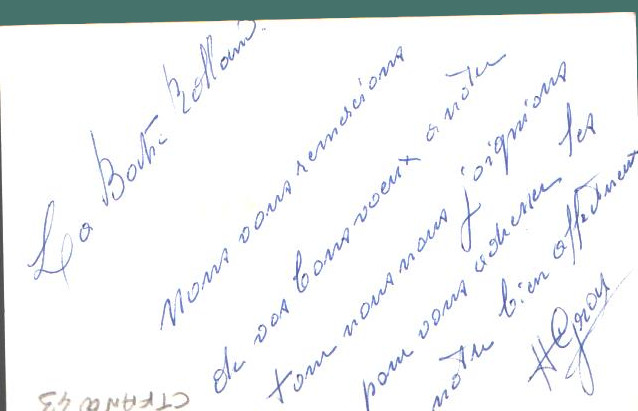 La Batie Rolland
nous vous remercions
de vos bons voeux a notre
tour nous nous joignions
pour vous adresser les
notre bien affectueux
H Gros
CTFRANQ 43